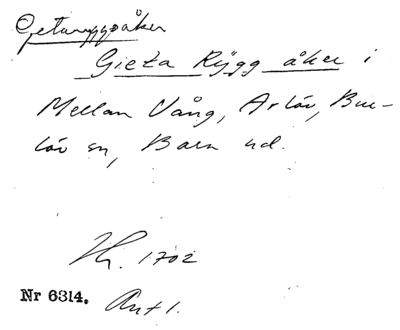 Getaryggsåker
Gieta Rÿgg åker i
Mellan Vång, Arlöv, Bur-
löv sn, Bara hd.
1702
Nr 6314. Ant 1.